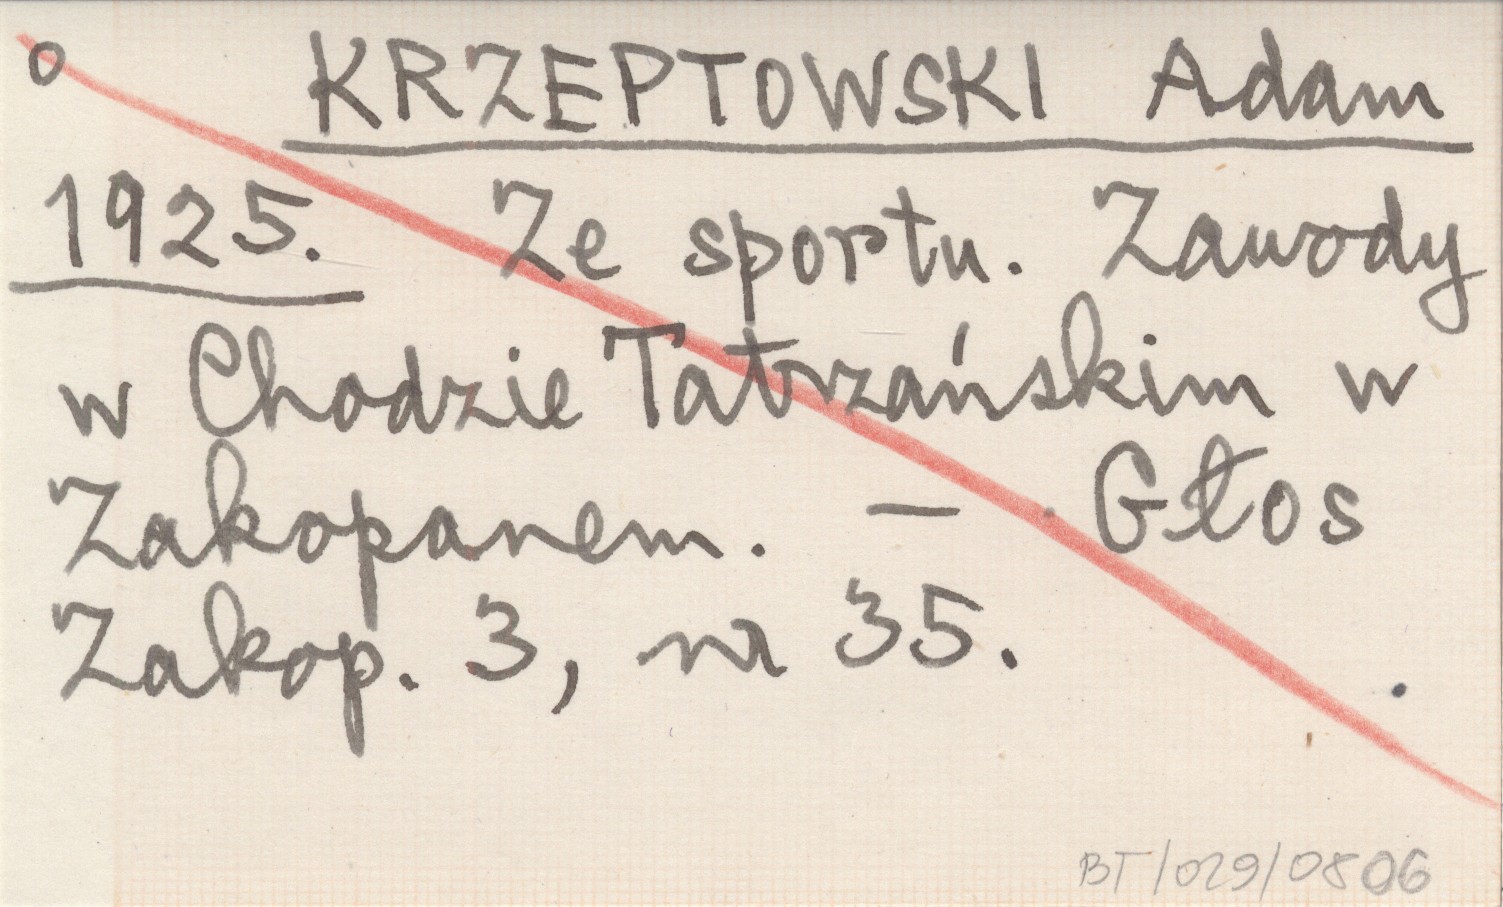 o KRZEPTOWSKI Adam
1925. Ze sportu. Zawody
w Chodzie Tatrzańskim w
Zakopanem. — Głos
Zakop. 3, nr 35.
BT/029/0806